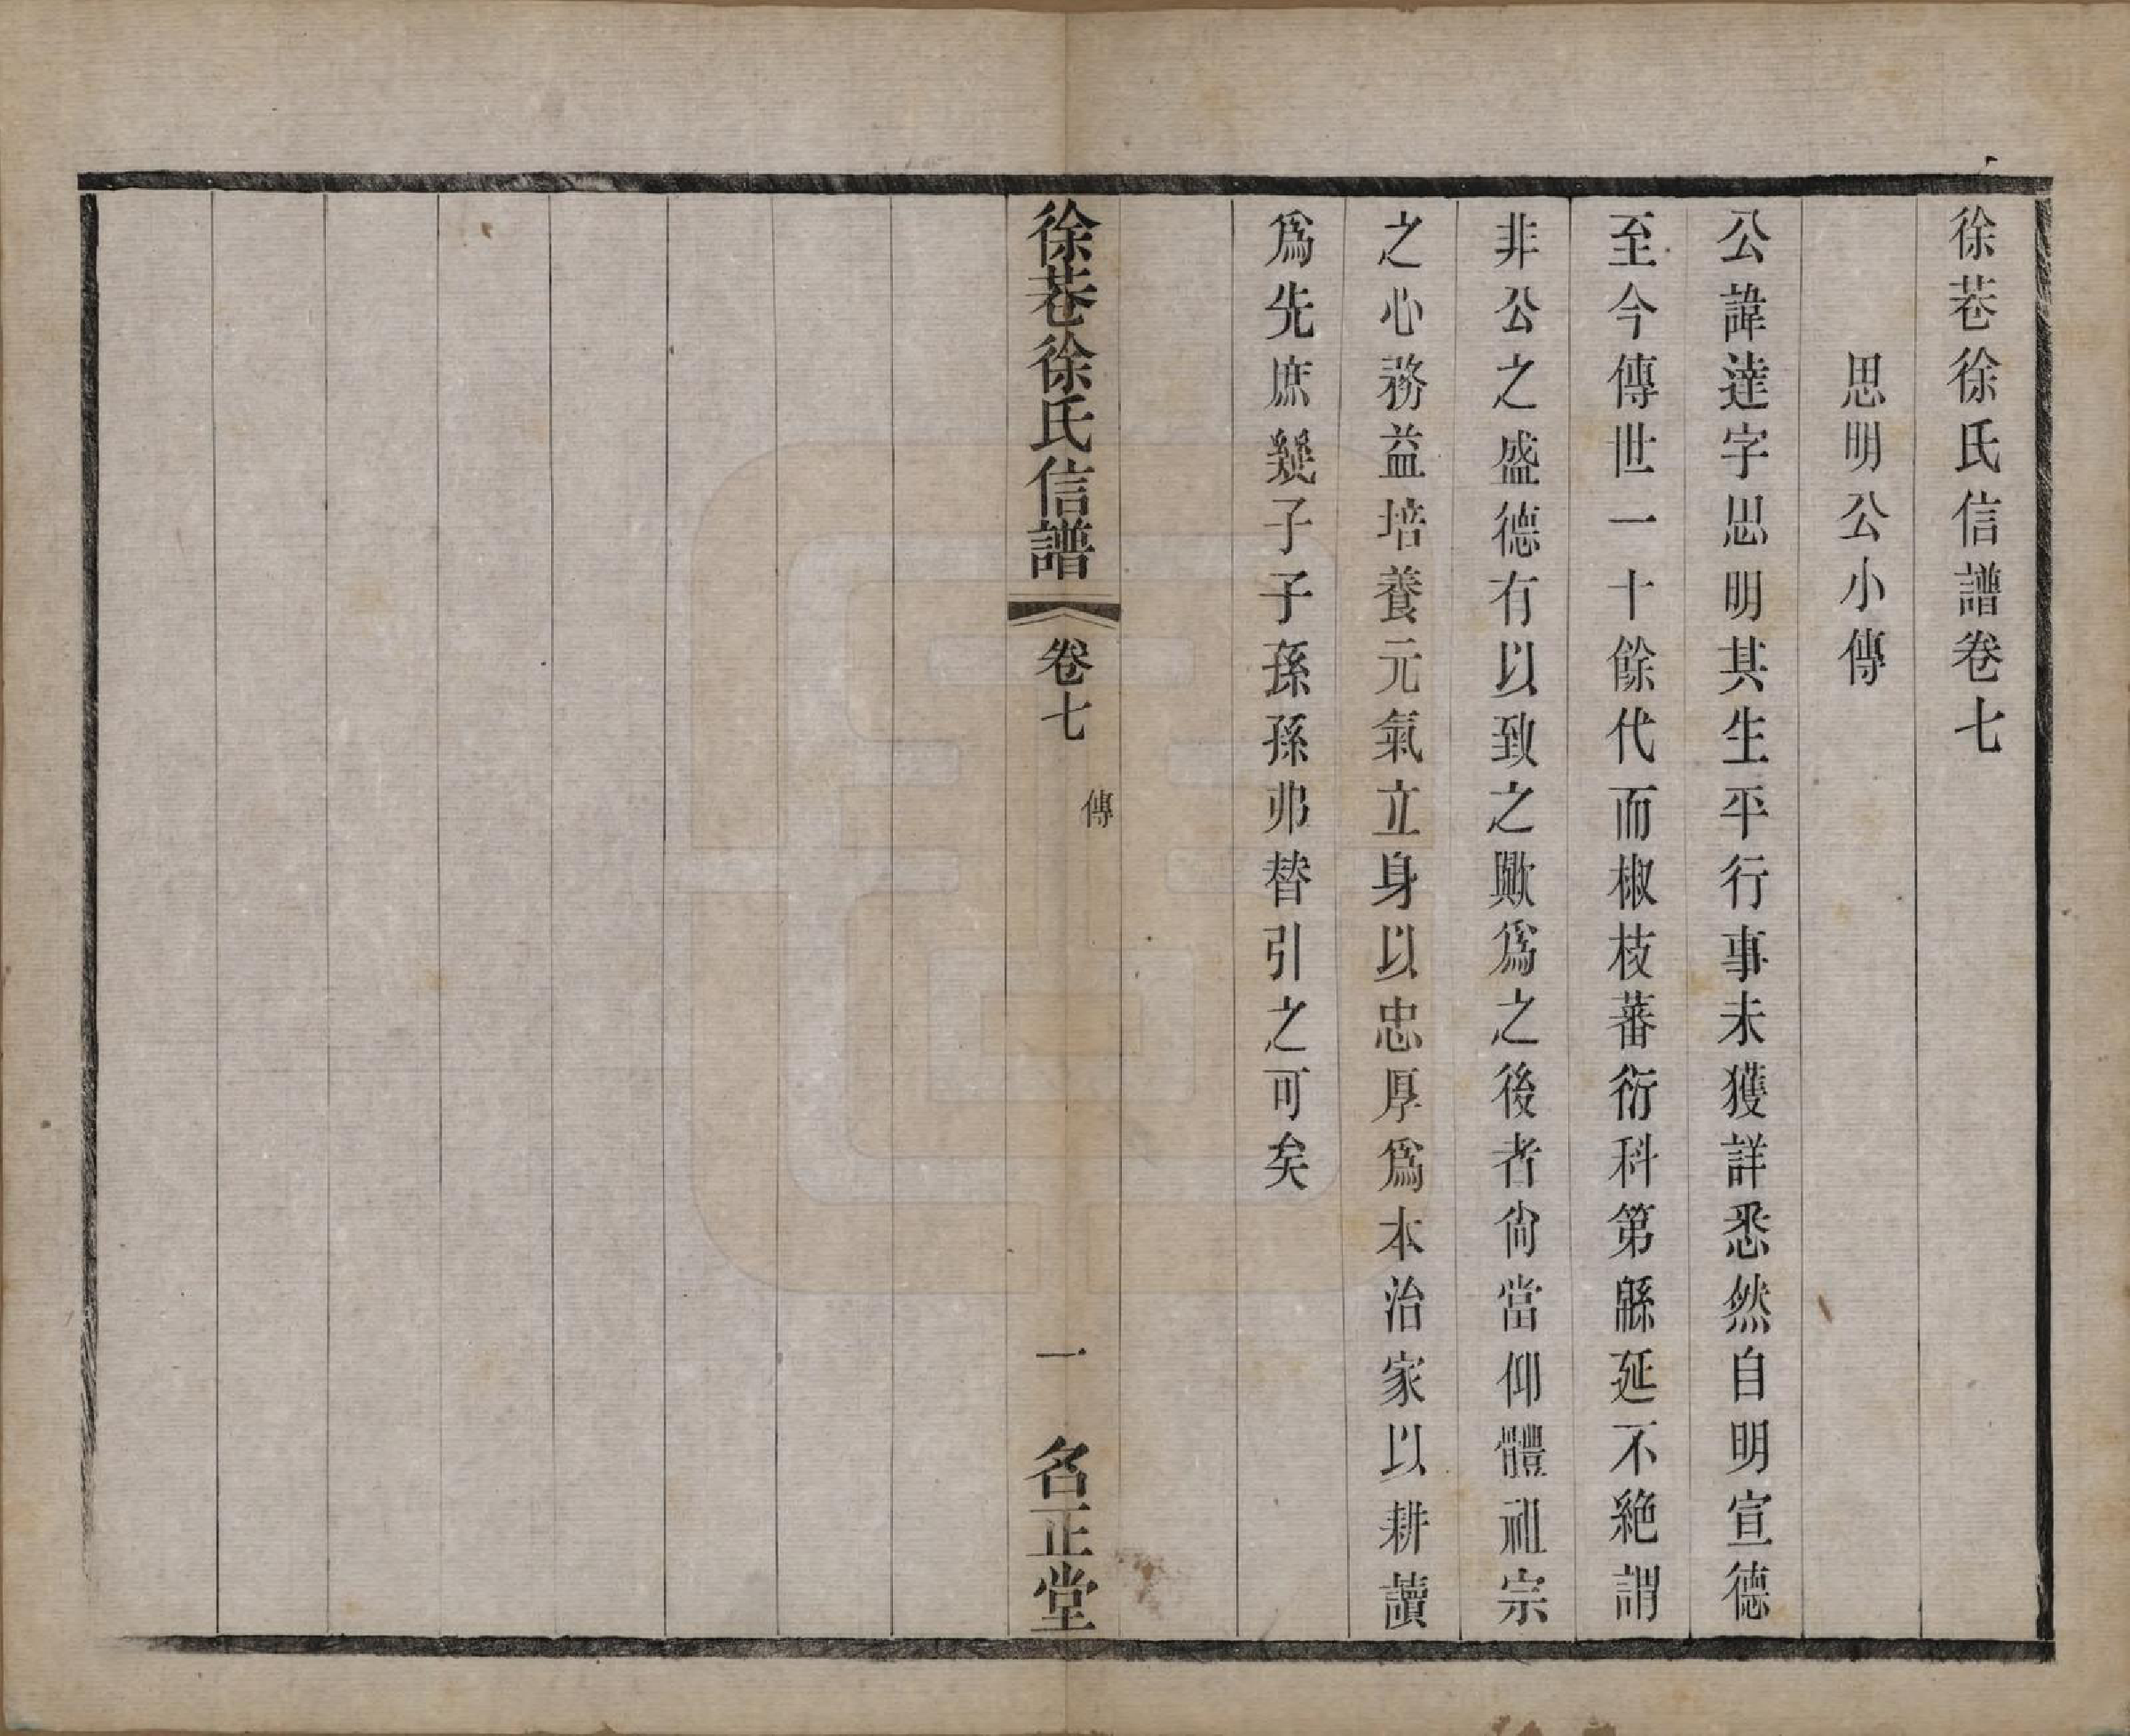 徐巷徐氏信譜卷七
思明公小傳
公諱達字思明其生平行事未獲詳悉然自明宣德
至今傳世一十餘代而椒枝蕃衍科第緜延不絶謂
非公之盛德有以致之歟爲之後者尙當仰體祖宗
之心務益培養元氣立身以忠厚爲本治家以耕讀
爲先庶幾子子孫孫弗替引之可矣
徐巷徐氏信譜
卷七
傳
一
名正堂